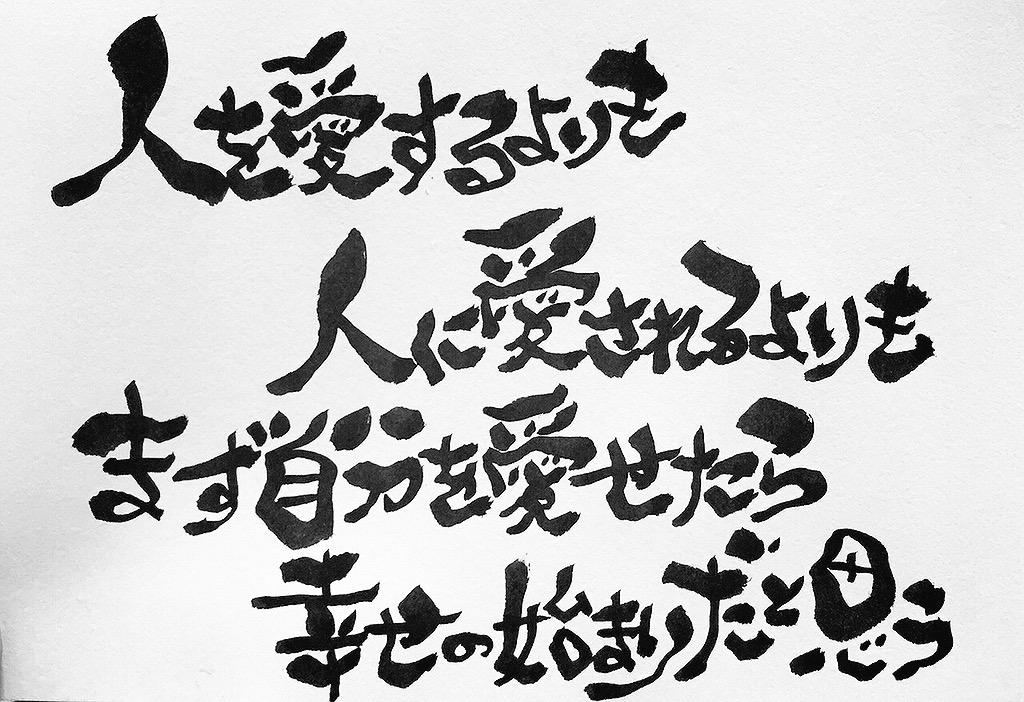 人を愛するよりも
人に愛されるよりも
まず自分を愛せたら
幸せの始まりだと思う